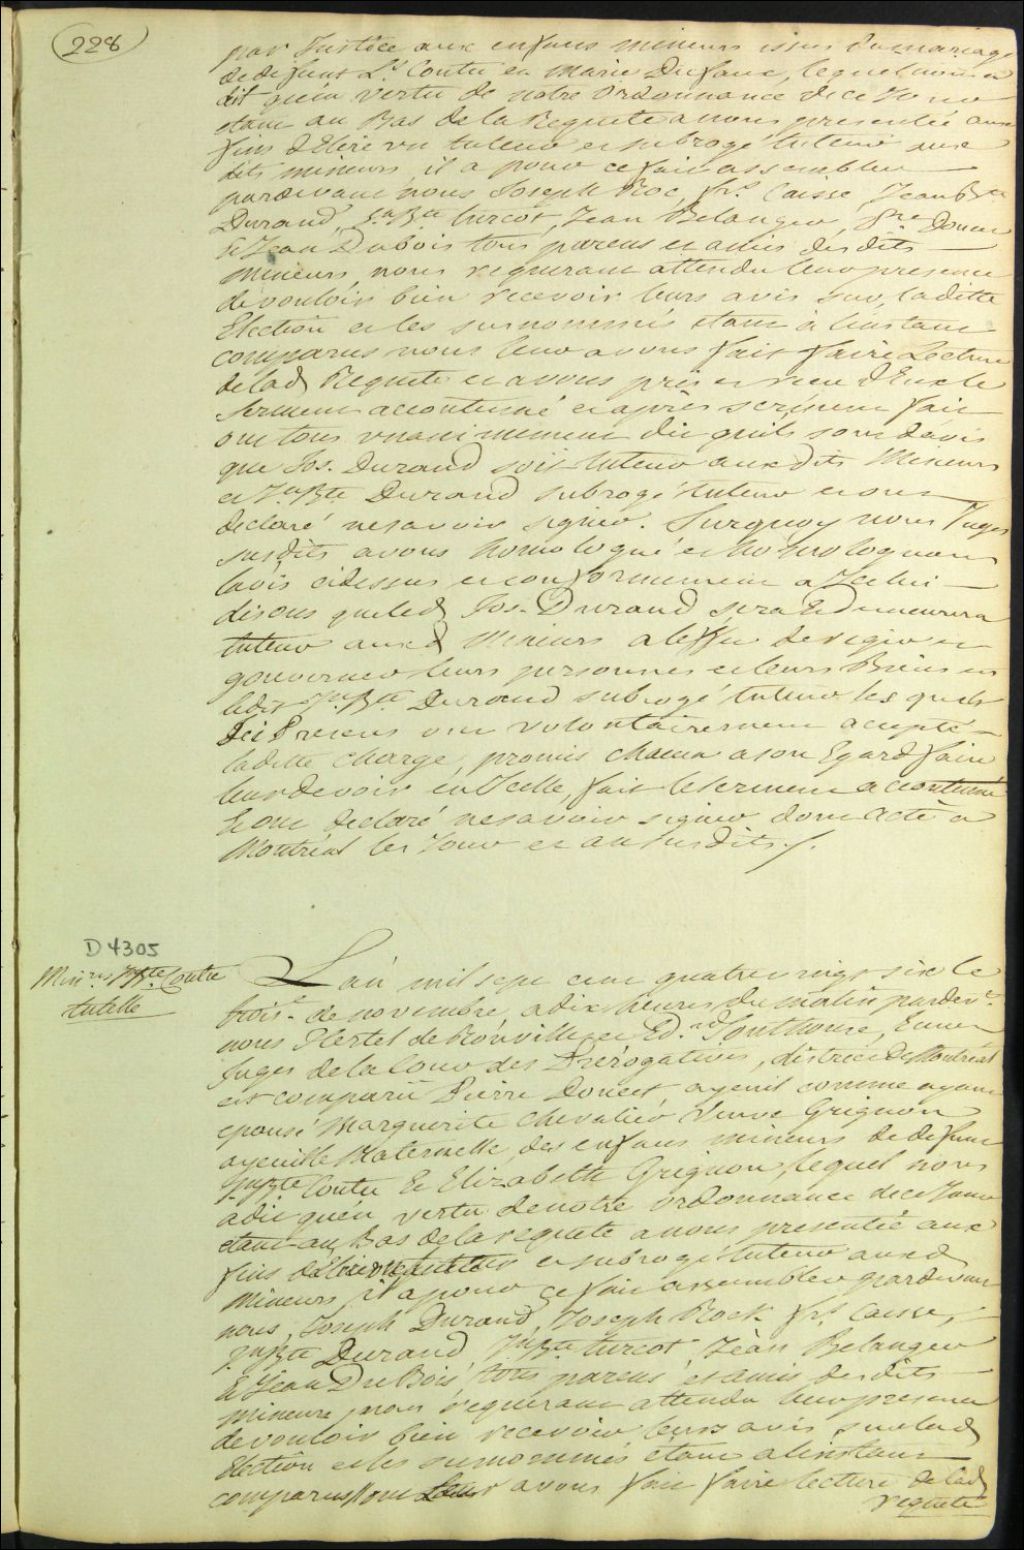 228
par Justice aux enfans mineurs issus du mariage
de defunt Ls. Coutu et Marie Dufaux, lequel nous a
dit qu'en vertu de notre Ordonnance de ce Jour
etant au Bas de la Requete a nous presentée aux
fins d'Elire un tuteur et subrogé tuteur aux
dits mineurs, il a pour ce fait assembler
pardevant nous Joseph Roc, frs. Caisse, Jean Bte
Durand, Jn Bte turcot, Jean Belanger, pre Doucet
& Jean Dubois tous parens et amis des dits
mineurs, nous requerant attendu leur presence
de vouloir bien recevoir leurs avis sur laditte
Election et les surnommés etant à l'instant
comparus nous leur avons fait faire Lecture
de lad Requete et avons pris et recu d'Eux le
Serment accoutumé et après serment fait
ont tous unanimement dit qu'ils sont d'avis
que Jos. Durand soit tuteur aux dits Mineurs
et Jn Bte Durand subrogé tuteur et ont
declaré ne savoir signer. Surquoy nous Juges
susdits avons homologué et homologuons
lavis cidessus et conformement a Icelui
disons que led Jos. Durand sera & demeurera
tuteur auxd Mineurs a leffet de regir et
gouverner leurs personnes et leurs Biens et
ledit Jn Bte Durand subrogé tuteur les quels
Ici Presens ont volontairement accepté
laditte charge, promis chacun a son Egard faire
leur devoir en Icelle, fait le serment accoutumé
& ont declaré ne savoir signer dont acte a
Montréal les Jour et an susdits ./.
D4305
Minrs. Jn Bte. Coutu
tutelle
L'an mil sept cent quatre vingt six le
trois de novembre, a dix heures du matin pardevt.
nous Hertel de Rouville et Edrd Southouse, Ecuiers
Juges de la Cour des Prérogatives, district de Montréal
est comparu Pierre Doucet ayeuil comme ayant
epousé Marguerite Chevalier Veuve Grignon
ayeuille Maternelle, des enfans mineurs de defunt
Jn Bte Coutu & Elizabeth Grignon, lequel nous
a dit qu'en vertu de notre Ordonnance de ce Jour
etant au Bas de la requete a nous presentée aux
fins d'Elire un tuteur et subrogé tuteur auxd
Mineurs il a pour ce fait assembler pardevant
nous, Joseph Durand, Joseph Rock frs. Caisse,
Jn Bte Durand, Jn Bte turcot, Jean Belanger
& Jean DuBois, tous parens et amis des dits
mineurs, nous requerant attendu leur presence
de vouloir bien recevoir leurs avis sur lad
Election et les surnommés etant a linstant
comparus nous Leur avons fait faire lecture de lad
requete